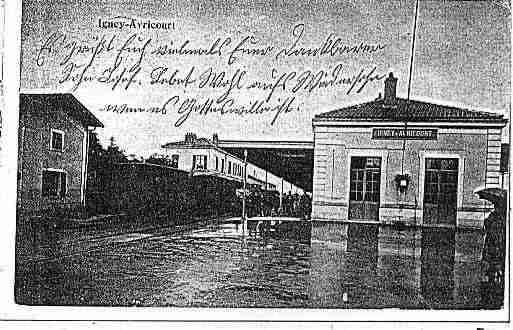 Igney-Avricourt
Es grüßt Euch vielmals Euer dankbarer
Sohn Josef. Lebet Wohl aufs Wiedersehn
wen es Gotteswille ist.
IGNEY-AVRICOURT